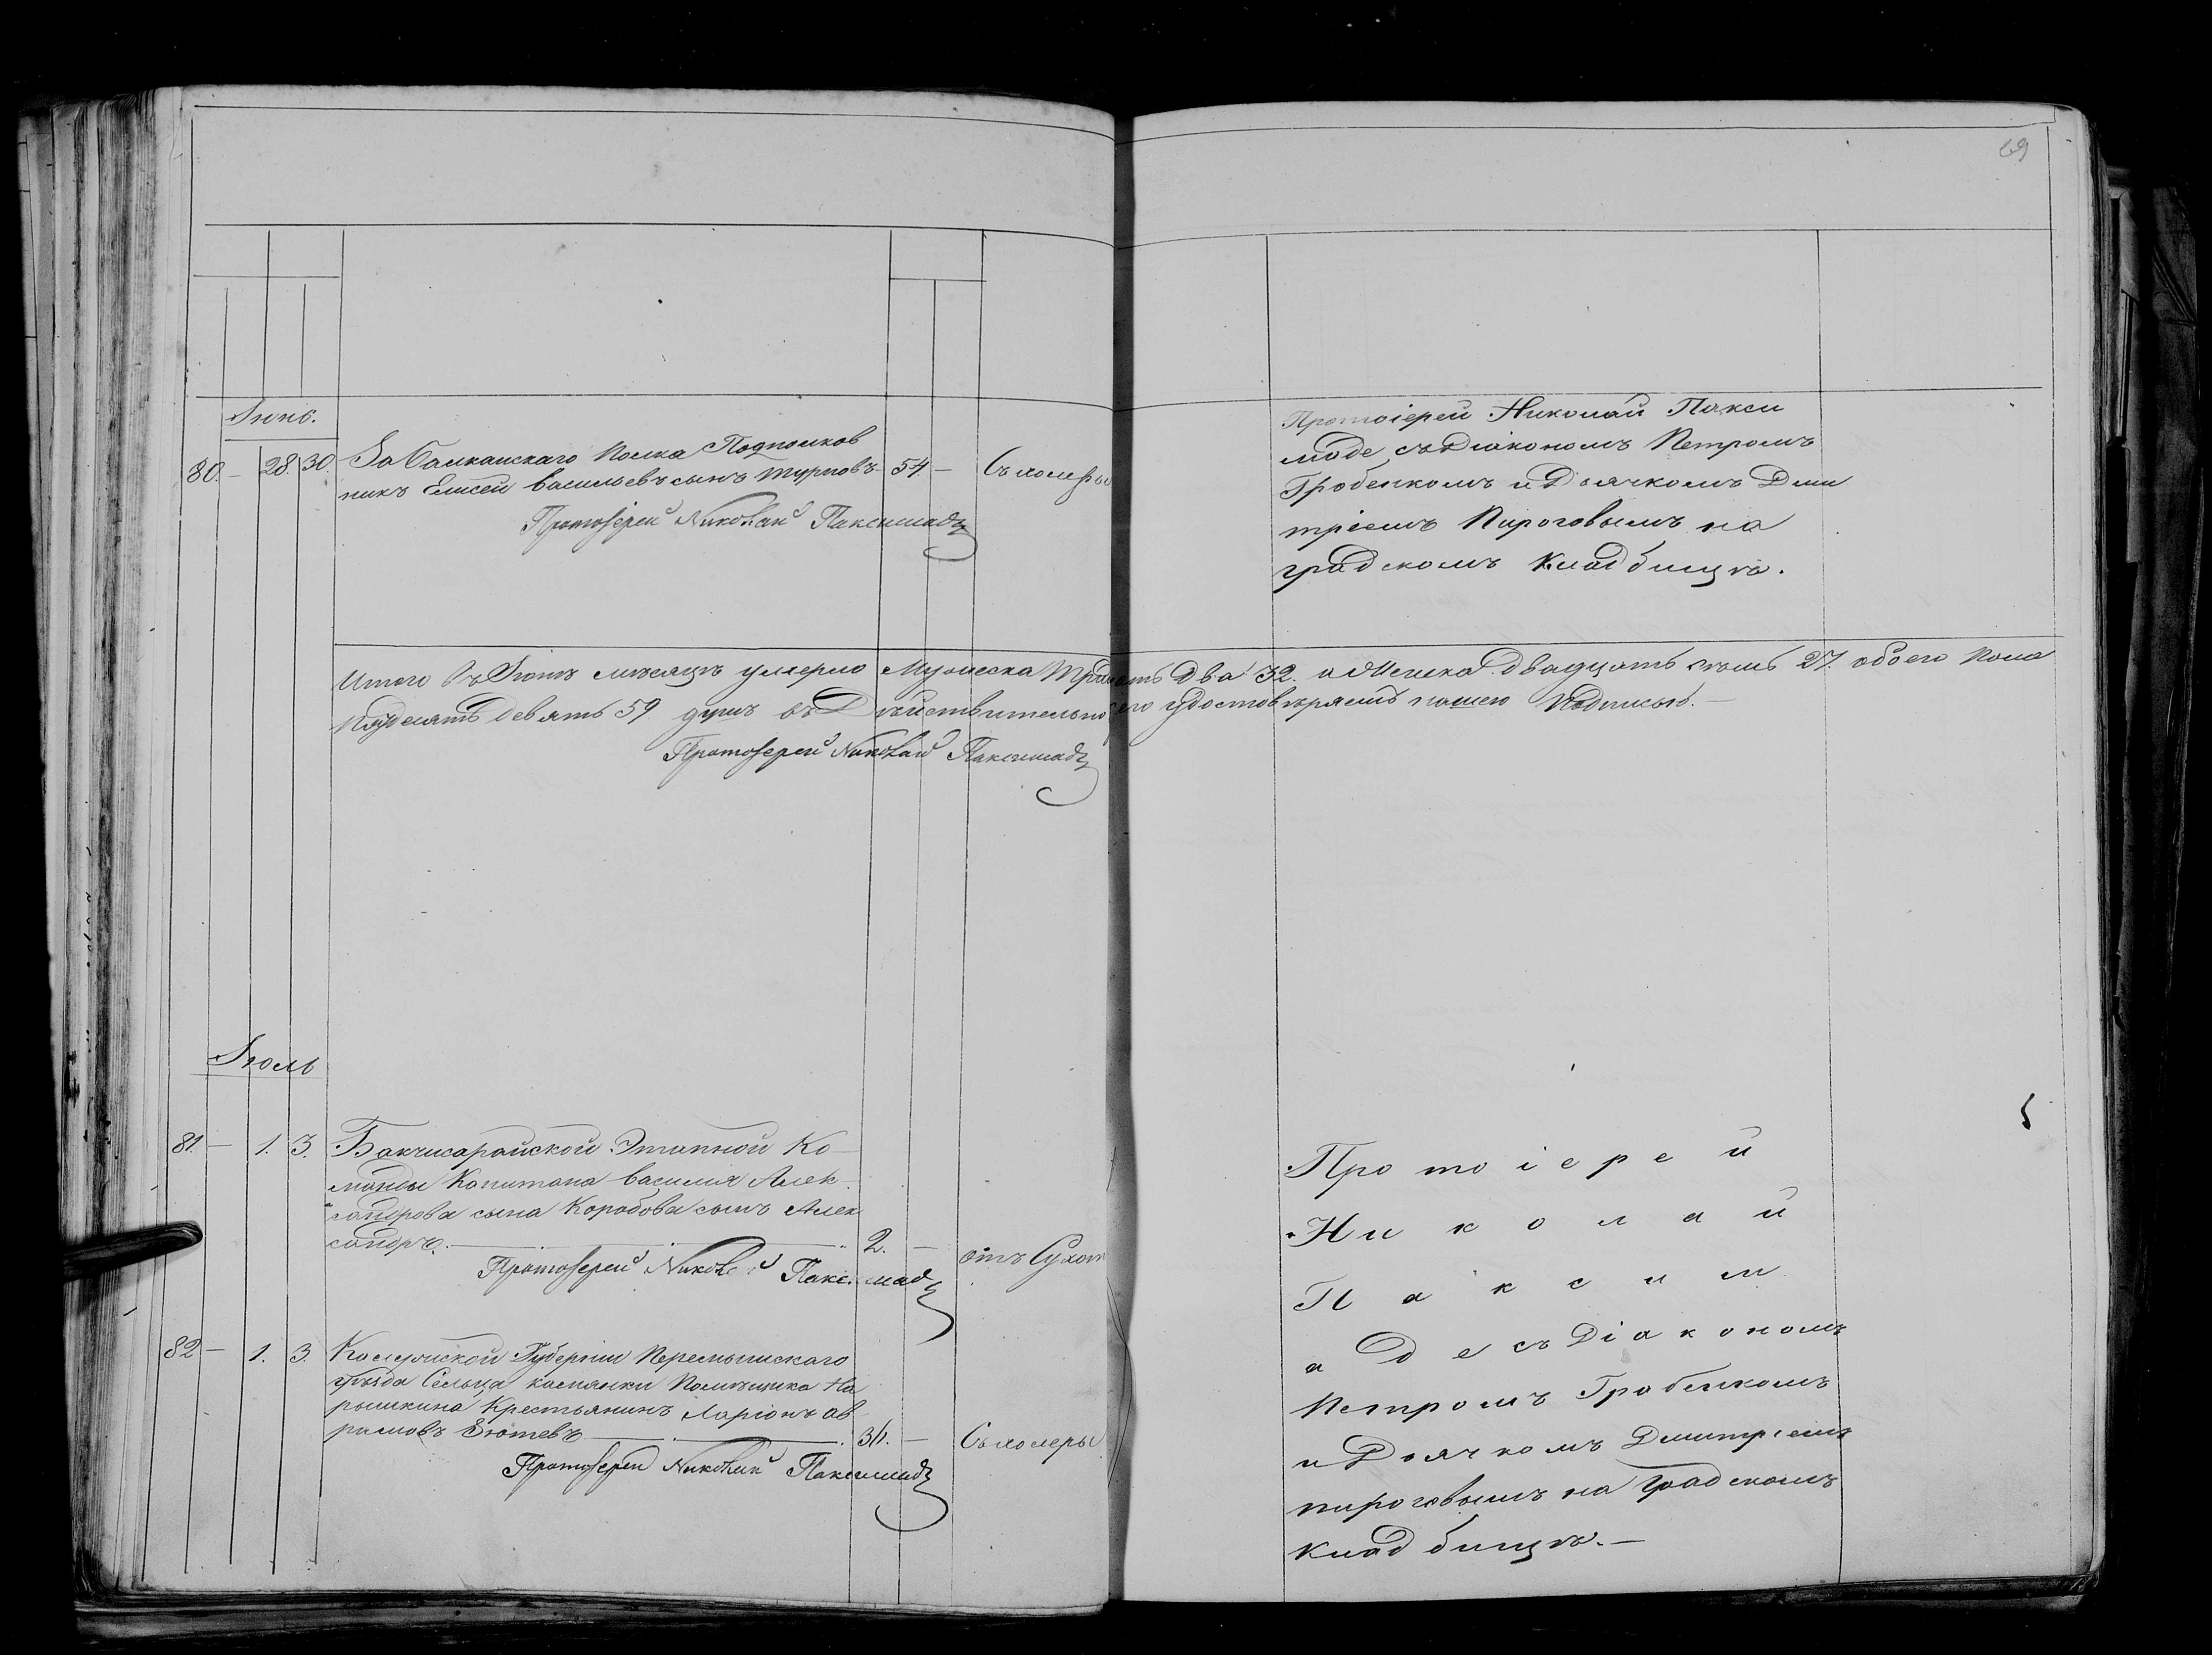 69
Іюнь.
80. — 28. 30. Забалканскаго Полка Подполков
никъ Елисей васильевъ сынъ Турповъ 54. — Съ холеры
Протоіерей Николай Паксимадъ
Протоіерей Николай Пакси
маде съ Діакономъ Петромъ
Гробенкомъ и Дьячкомъ Дми
тріемъ Пироговымъ на
градскомъ кладбищѣ.
Итого въ Іюнѣ мѣсяцѣ умерло Мужеска Тридцать два 32. а Женска Двадцать семь 27. обоего пола
Пядесятъ девять 59 душъ въ Дѣйствительно его удостовѣряемъ нашею Подписью. —
Протоіерей Николай Паксимадъ
Іюль
81. — 1. 3. Бакчисарайской Этапной Ко-
манды Капитана василия Алек-
сандрова сына Коробова сынъ Алек
сандръ. 2. — отъ Сухот
Протоіерей Николай Паксимадъ
82 — 1. 3. Калужской Губерніи Перемышскаго
уѣзда Сельца Помѣщика На
рышкина Крестьянинъ Ларіонъ Ав
рамовъ 36. — Съ холеры
Протоіерей Николай Паксимадъ
Протоіерей
Николай
Паксим
аде съ Діакономъ
Петромъ Гробенкомъ
и Дьячкомъ Димитріемъ
пироговымъ на Градскомъ
кладбищѣ. —